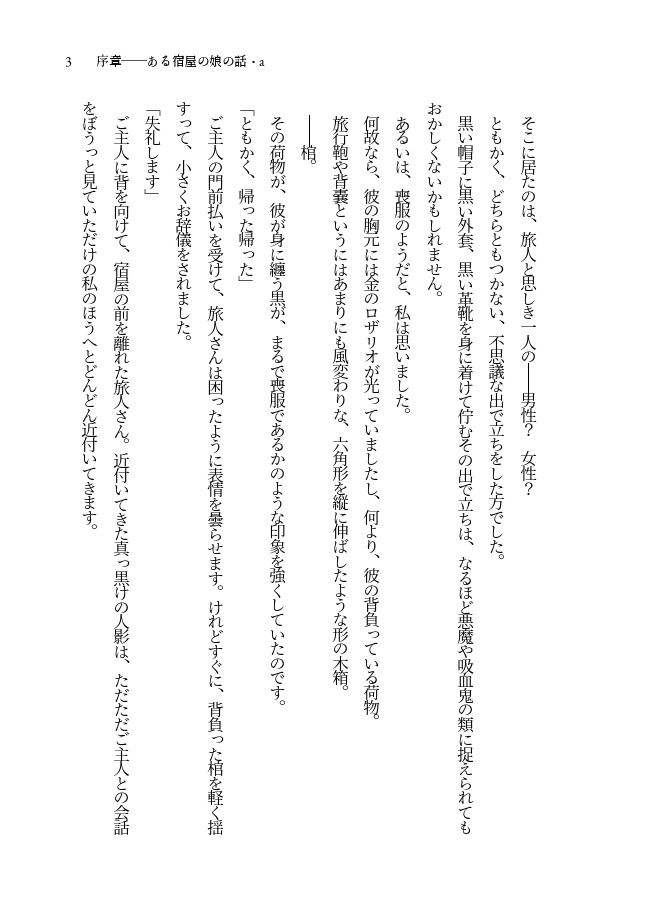 3　序章――ある宿屋の娘の話・a
　そこに居たのは、旅人と思しき一人の――男性？　女性？
　ともかく、どちらともつかない、不思議な出で立ちをした方でした。
　黒い帽子に黒い外套、黒い革靴を身に着けて佇むその出で立ちは、なるほど悪魔や吸血鬼の類に捉えられても
おかしくないかもしれません。
　あるいは、喪服のようだと、私は思いました。
　何故なら、彼の胸元には金のロザリオが光っていましたし、何より、彼の背負っている荷物。
　旅行鞄や背嚢というにはあまりにも風変わりな、六角形を縦に伸ばしたような形の木箱。
　――棺。
　その荷物が、彼が身に纏う黒が、まるで喪服であるかのような印象を強くしていたのです。
「ともかく、帰った帰った」
　ご主人の門前払いを受けて、旅人さんは困ったように表情を曇らせます。けれどすぐに、背負った棺を軽く揺
すって、小さくお辞儀をされました。
「失礼します」
　ご主人に背を向けて、宿屋の前を離れた旅人さん。近付いてきた真っ黒けの人影は、ただただご主人との会話
をぼうっと見ていただけの私のほうへとどんどん近付いてきます。